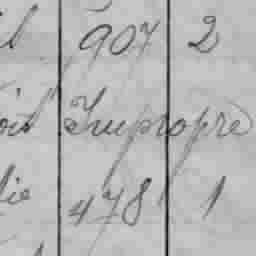 il 907 2
oit Impropre
lie 478 1